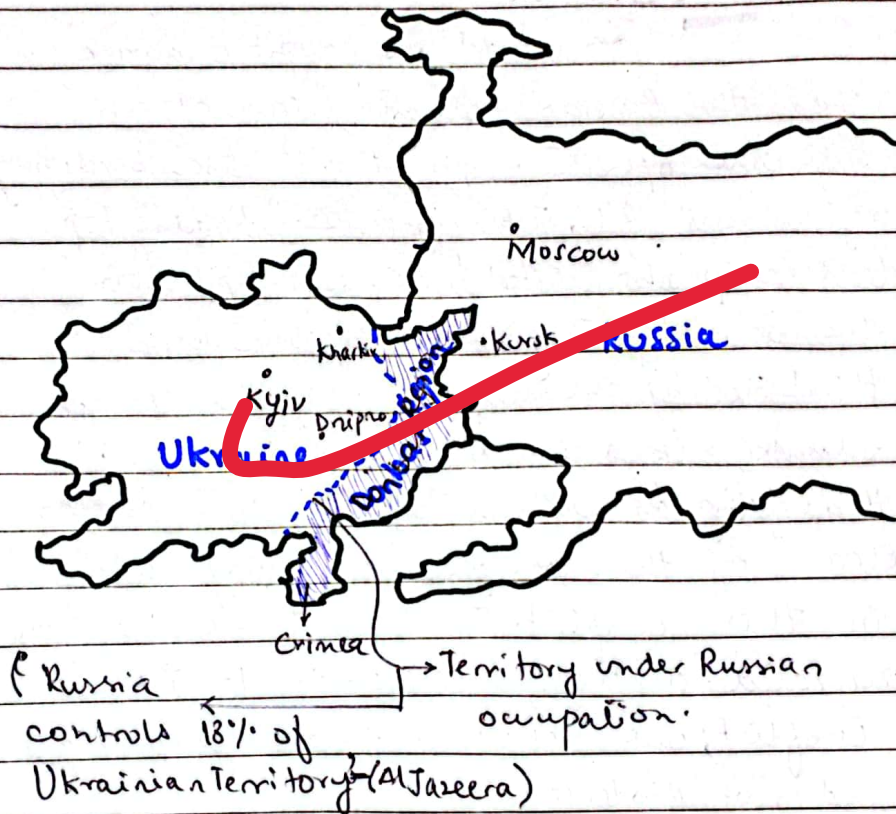 Moscow
Kharkiv
Kursk
RUSSIA
Kyiv
Dnipro
Ukraine
Donbas Region
Crimea
Territory under Russian
occupation.
Russia
controls 18% of
Ukrainian Territory"-(Al Jazeera)